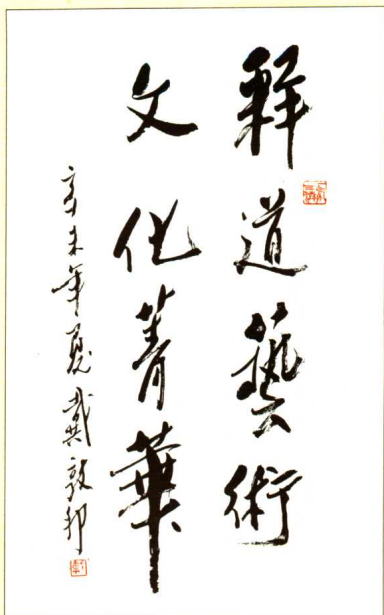 釋道藝術
文化菁華
辛未年夏戴敦邦